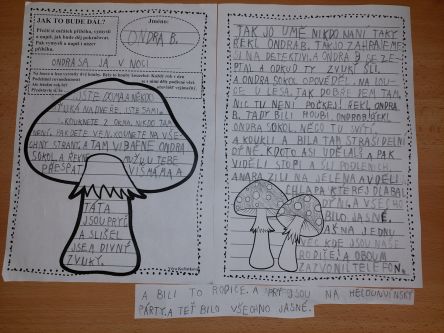 JAK TO BUDE DÁL?
Přečti si začátek příběhu, vymysli
a napiš, jak bude děj pokračovat.
Pak vymysli a napiš i název
příběhu.
Jméno:
ONDRA B.
ONDRA SA JÁ V NOCI
JSTE DOMA A NĚKDO
ŤUKÁ NA DVEŘE. JSTE SAMI
KOUKNETE Z OKNA. NIKDO TAM
NENÍ. PAK DETE VEN. KOUKNETE NA VŠE-
CHNY STRANY A TAM VIBAFNE ONDRA
SOKOL A ŘEKNE MŮŽU U TEBE
PŘESPAT VIŠ MÁMA A
TÁTA
JSOU PRYČ
A SLIŠEL
JSEM DIVNÝ
ZVUKY.
TAK JO UMĚ NIKDO NANI TAKY
ŘEKL ONDRA B. TAK JO ZAHRAJEME
SI NA DETEKTIVA ONDRA B. SE ZE-
PTAL A ODKUD TY ZVUKY ŠLI.
A ONDRA SOKOL ODPOVĚDĚL NA LOU-
CE U LESA. TAK DOBŘE JDEM TAM.
NIC TU NENÍ POČKEJ! ŘEKL ONDRA
B. TADY BILI HOUBI. ONDRO B. ŘEKL
ONDRA SOKOL NĚCO TU SVÍTÍ.
A KOUKLI A BILA TAM STRAŠIDELNÍ
DÝNĚ. KDO TO ASI UDĚLAL? A PAK
VIDĚLI STOPI A ŠLI PODLE NICH.
A NARAZILI NA JELENA A VIDĚLI
CHLAPA KTEREJ DLABAL
DÝNI. A VŠECHNO
BILO JASNÉ.
AŽ NA JEDNU
VĚC KDE JSOU NAŠE
RODIČE. A OBOUM
ZAZVONIL TELEFON.
A BILI TO RODIČE. A PRÝ JSOU NA HELOUNVÍNSKY
PÁRTY. A TEĎ BILO VŠECHNO JASNÉ.